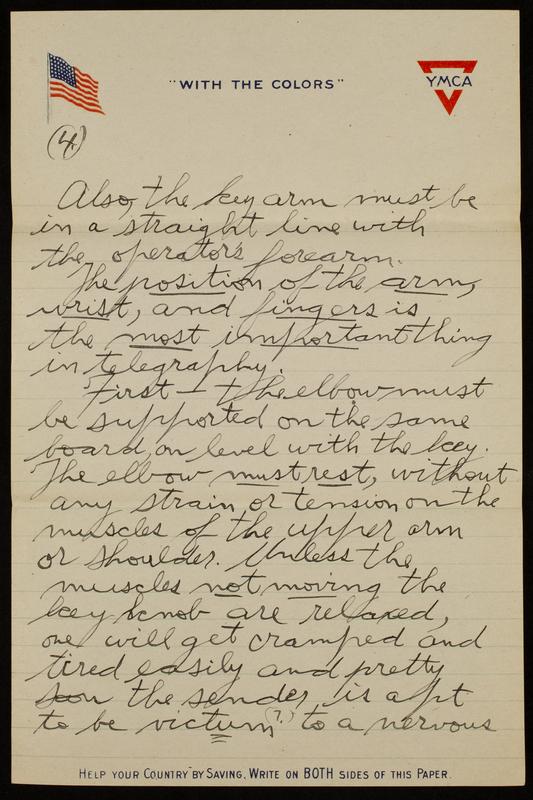 "WITH THE COLORS"
YMCA
(4)
Also, the key arm must be
in a straight line with
the operator's forearm.
The position of the arm,
wrist, and fingers is
the most important thing
in telegraphy.
First — the elbow must
be supported on the same
board, on level with the key.
The elbow must rest, without
any strain or tension on the
muscles of the upper arm
or shoulder. Unless the
muscles not moving the
key knob are relaxed,
one will get cramped and
tired easily and pretty
soon the sender is apt
to be victum (?) to a nervous
HELP YOUR COUNTRY BY SAVING. WRITE ON BOTH SIDES OF THIS PAPER.